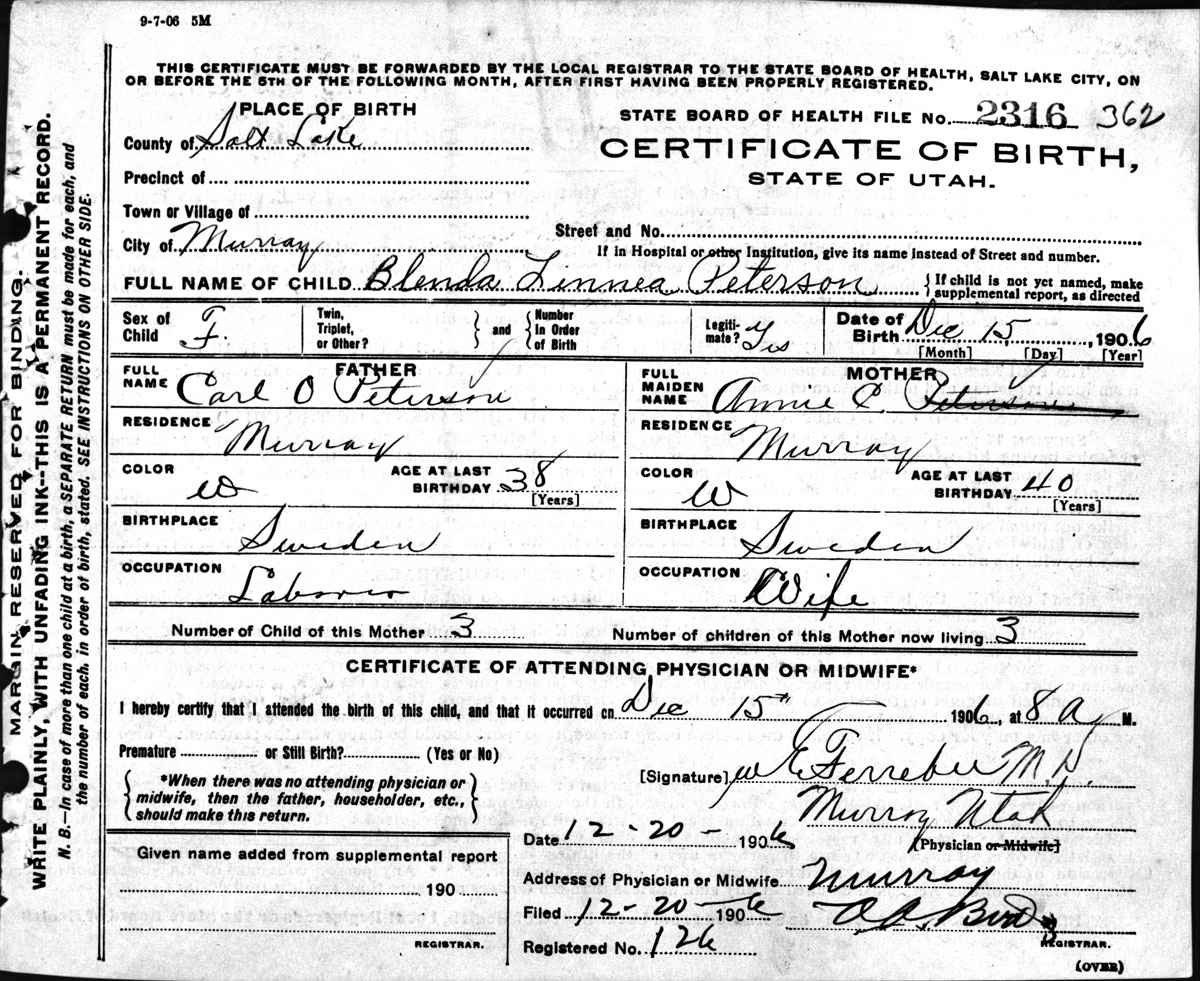 9-7-06 5M
THIS CERTIFICATE MUST BE FORWARDED BY THE LOCAL REGISTRAR TO THE STATE BOARD OF HEALTH, SALT LAKE CITY, ON
OR BEFORE THE 5TH OF THE FOLLOWING MONTH, AFTER FIRST HAVING BEEN PROPERLY REGISTERED.
PLACE OF BIRTH
County of Salt Lake
Precinct of
Town or Village of
City of Murray
STATE BOARD OF HEALTH FILE No. 2316 362
CERTIFICATE OF BIRTH,
STATE OF UTAH.
Street and No.
If in Hospital or other Institution, give its name instead of Street and number.
FULL NAME OF CHILD Blenda Linnea Peterson {If child is not yet named, make
supplemental report, as directed
Sex of
Child F.
Twin,
Triplet,
or Other?
and
Number
in Order
of Birth
Legiti-
mate? Yes
Date of
Birth Dec 15, 1906
[Month] [Day] [Year]
FATHER
FULL
NAME Carl O Peterson
RESIDENCE Murray
COLOR W
AGE AT LAST
BIRTHDAY 38
[Years]
BIRTHPLACE Sweden
OCCUPATION Laborer
MOTHER
FULL
MAIDEN
NAME Annie C. Peterson
RESIDENCE Murray
COLOR W
AGE AT LAST
BIRTHDAY 40
[Years]
BIRTHPLACE Sweden
OCCUPATION Wife
Number of Child of this Mother 3
Number of children of this Mother now living 3
CERTIFICATE OF ATTENDING PHYSICIAN OR MIDWIFE*
I hereby certify that I attended the birth of this child, and that it occurred on Dec 15th 1906, at 8 a M.
Premature or Still Birth? (Yes or No)
{*When there was no attending physician or
midwife, then the father, householder, etc.,
should make this return.}
[Signature] W E Ferrebee M.D.
Murray Utah
Date 12-20- 1906
[Physician or Midwife]
Given name added from supplemental report
190
REGISTRAR.
Address of Physician or Midwife Murray
Filed 12-20-1906
REGISTRAR.
Registered No. 126
(OVER)
MARGIN RESERVED FOR BINDING.
WRITE PLAINLY, WITH UNFADING INK--THIS IS A PERMANENT RECORD.
N. B.—In case of more than one child at a birth, a SEPARATE RETURN must be made for each, and
the number of each, in order of birth, stated. SEE INSTRUCTIONS ON OTHER SIDE.